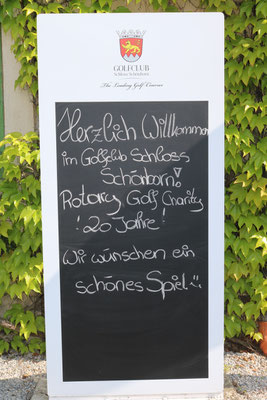 GOLFCLUB
Schloss Schönborn
The Leading Golf Courses
Herzlich Willkommen
im Golfclub Schloss
Schönborn!
Rotary Golf Charity
! 20 Jahre!
Wir wünschen ein
schönes Spiel :)